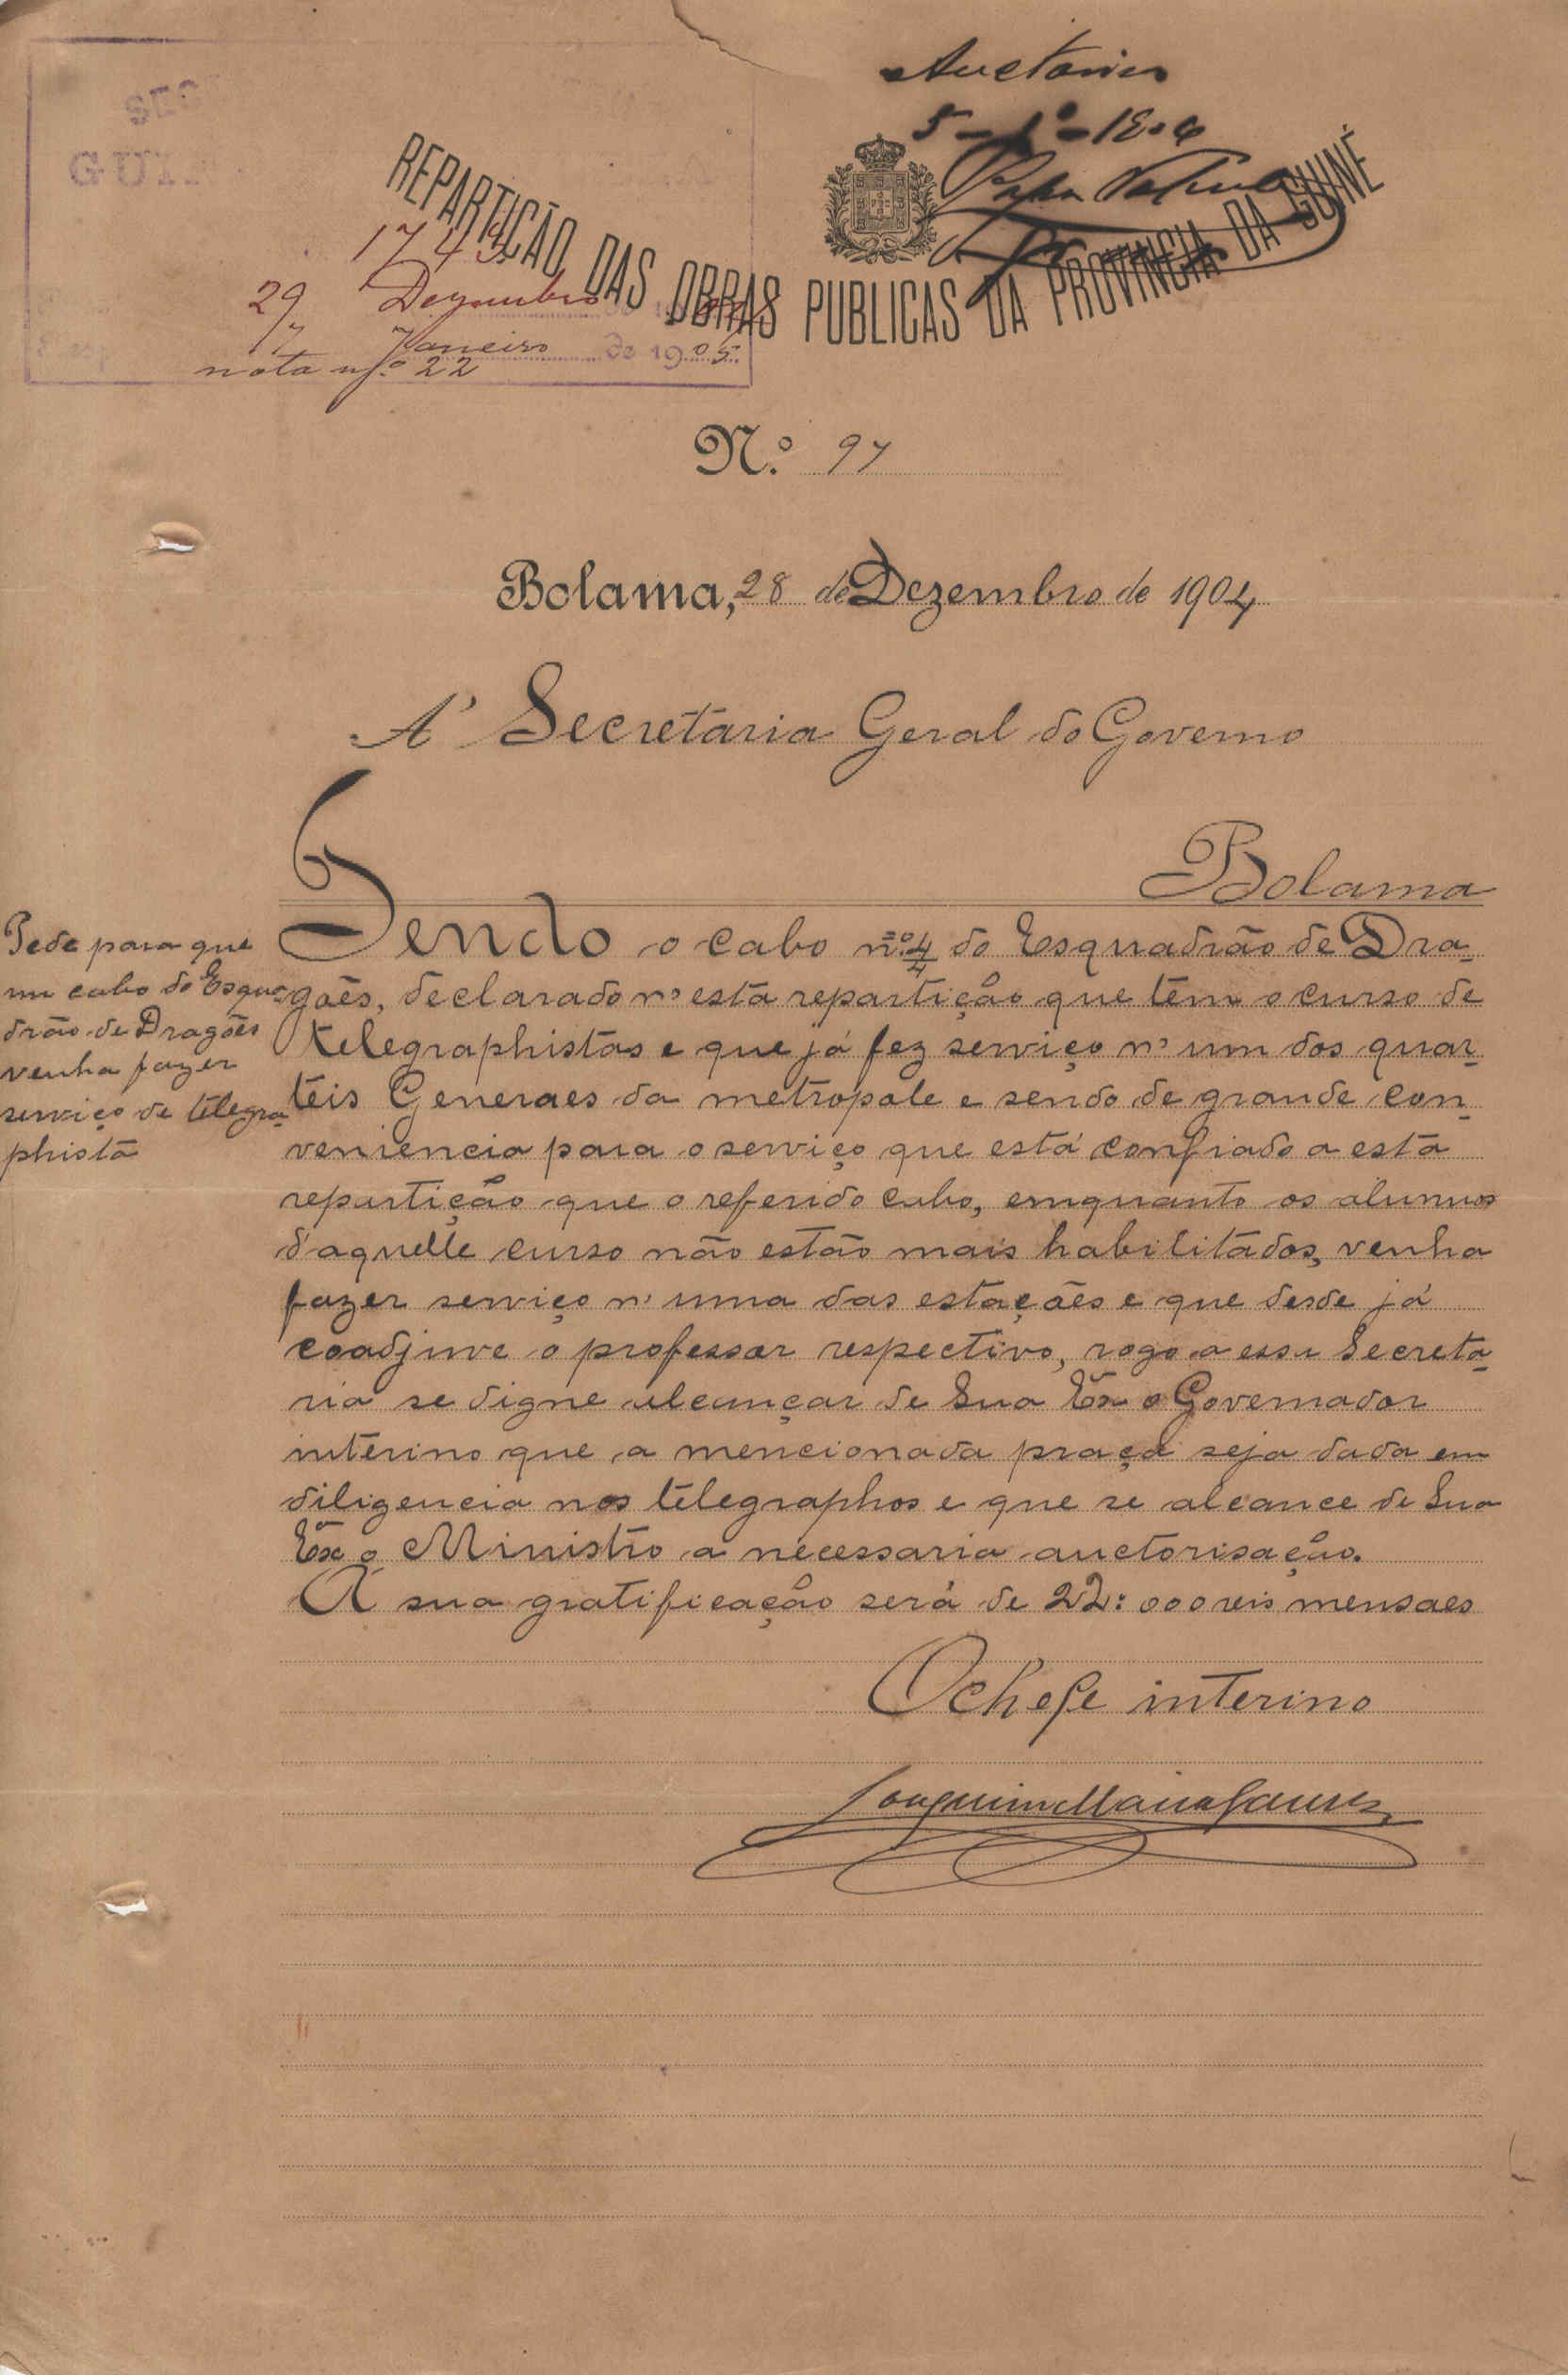 Auctoriso
5-1º-190
SEC
GUI
REPARTIÇÃO DAS OBRAS PUBLICAS DA PROVINCIA DA GUINÉ
174
29 Dezembro
7 Janeiro de 1905
nota nº 22
N.º 97
Bolama, 28 de Dezembro de 1904
A' Secretaria Geral do Governo
Bolama
Pede para que
um cabo do Esqua-
drão de Dragões
venha fazer
serviço de telegra-
phista
Tendo o cabo nº 4/4 do Esquadrão de Dra-
gões, declarado n'esta repartição que têm o curso de
telegraphistas e que já fez serviço n'um dos quar-
teis Generaes da metropole e sendo de grande con-
veniencia para o serviço que está confiado a esta
repartição que o referido cabo, emquanto os alumnos
d'aquelle curso não estão mais habilitados, venha
fazer serviço n'uma das estações e que desde já
coadjuve o professor respectivo, rogo a essa Secreta-
ria se digne alcançar de Sua Exª o Governador
interino que a mencionada praça seja dada em
diligencia nos telegraphos e que se alcance de Sua
Exª o Ministro a necessaria auctorisação.
A sua gratificação será de 22:000 reis mensaes
O chefe interino
Joaquim Maria